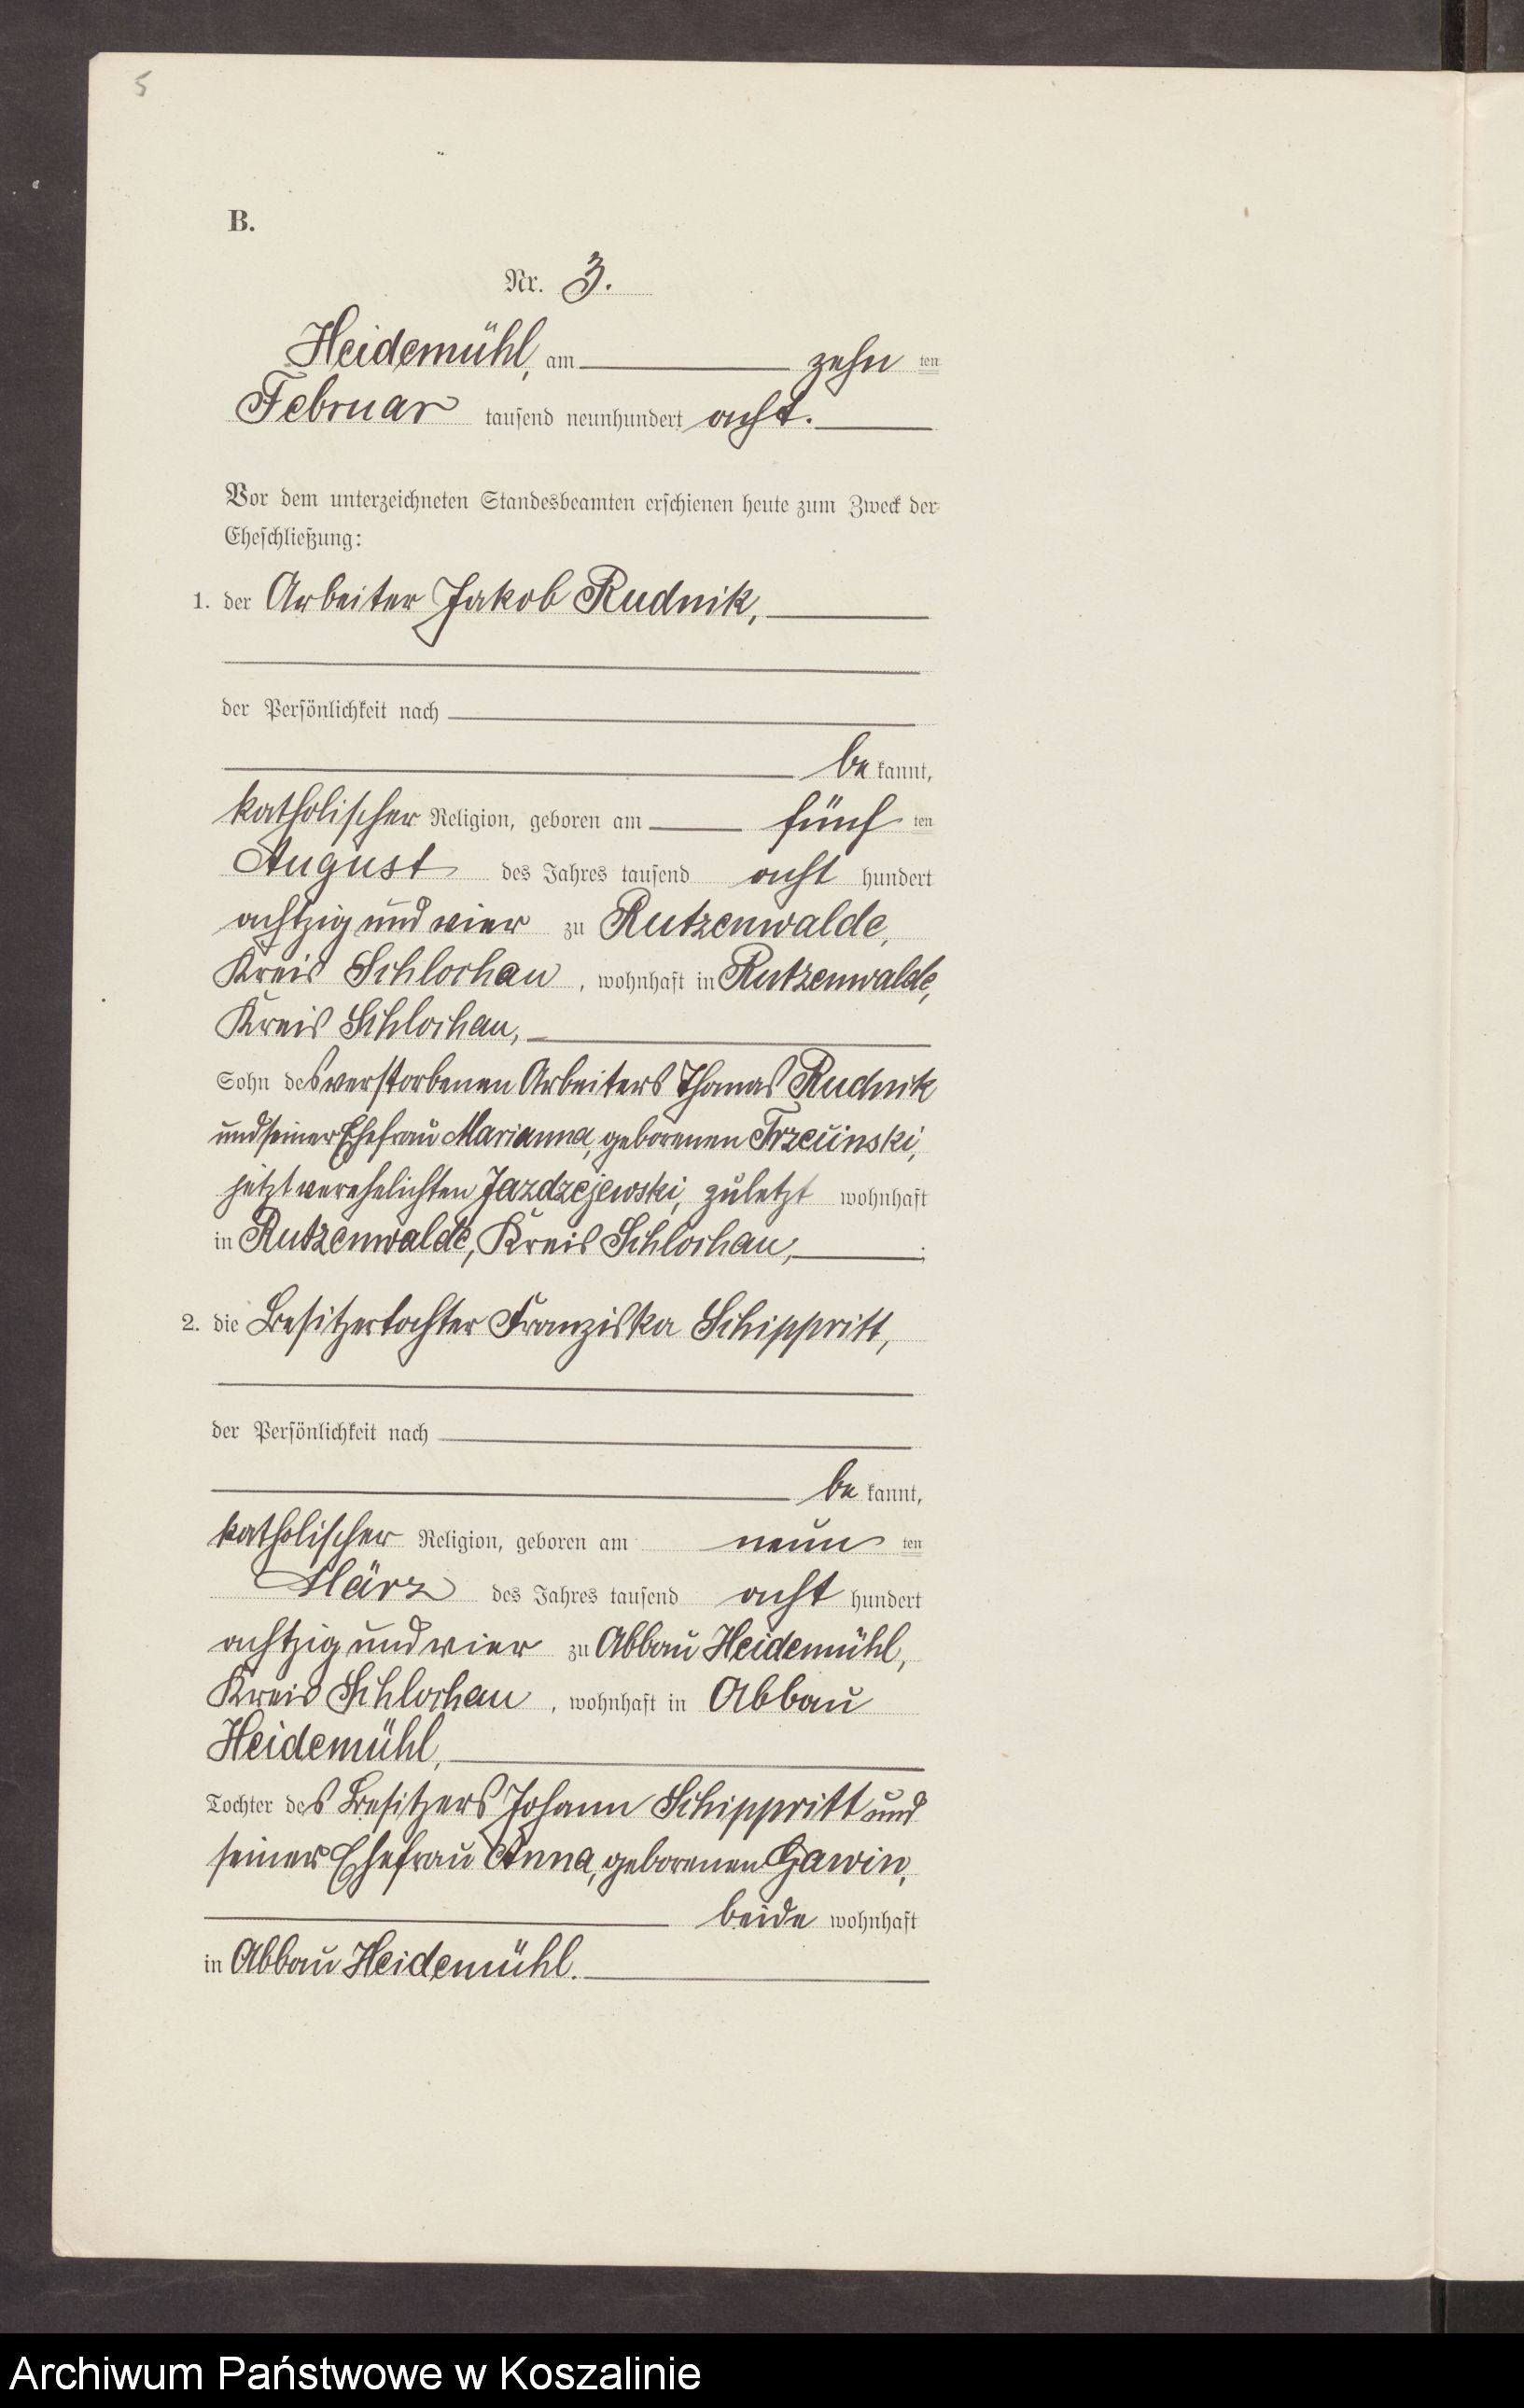 5
B.
Nr. 3.
Heidemühl, am zehn ten
Februar tausend neunhundert acht.
Vor dem unterzeichneten Standesbeamten erschienen heute zum Zweck der
Eheschließung:
1. der Arbeiter Jakob Rudnik,
der Persönlichkeit nach
be kannt,
katholischer Religion, geboren am fünf ten
August des Jahres tausend acht hundert
achtzig und vier zu Rutzenwalde,
Kreis Schlochau, wohnhaft in Rutzenwalde,
Kreis Schlochau,
Sohn des verstorbenen Arbeiters Thomas Rudnik
und seiner Ehefrau Marianna, geborenen Trzeinski,
jetzt verehelichten Jazdzejewski, zuletzt wohnhaft
in Rutzenwalde, Kreis Schlochau, ;
2. die Besitzertochter Franziska Schippritt,
der Persönlichkeit nach
be kannt,
katholischer Religion, geboren am neun ten
März des Jahres tausend acht hundert
achtzig und vier zu Abbau Heidemühl,
Kreis Schlochau, wohnhaft in Abbau
Heidemühl,
Tochter des Besitzers Johann Schippritt und
seiner Ehefrau Anna, geborenen Gawin,
beide wohnhaft
in Abbau Heidemühl.
Archiwum Państwowe w Koszalinie